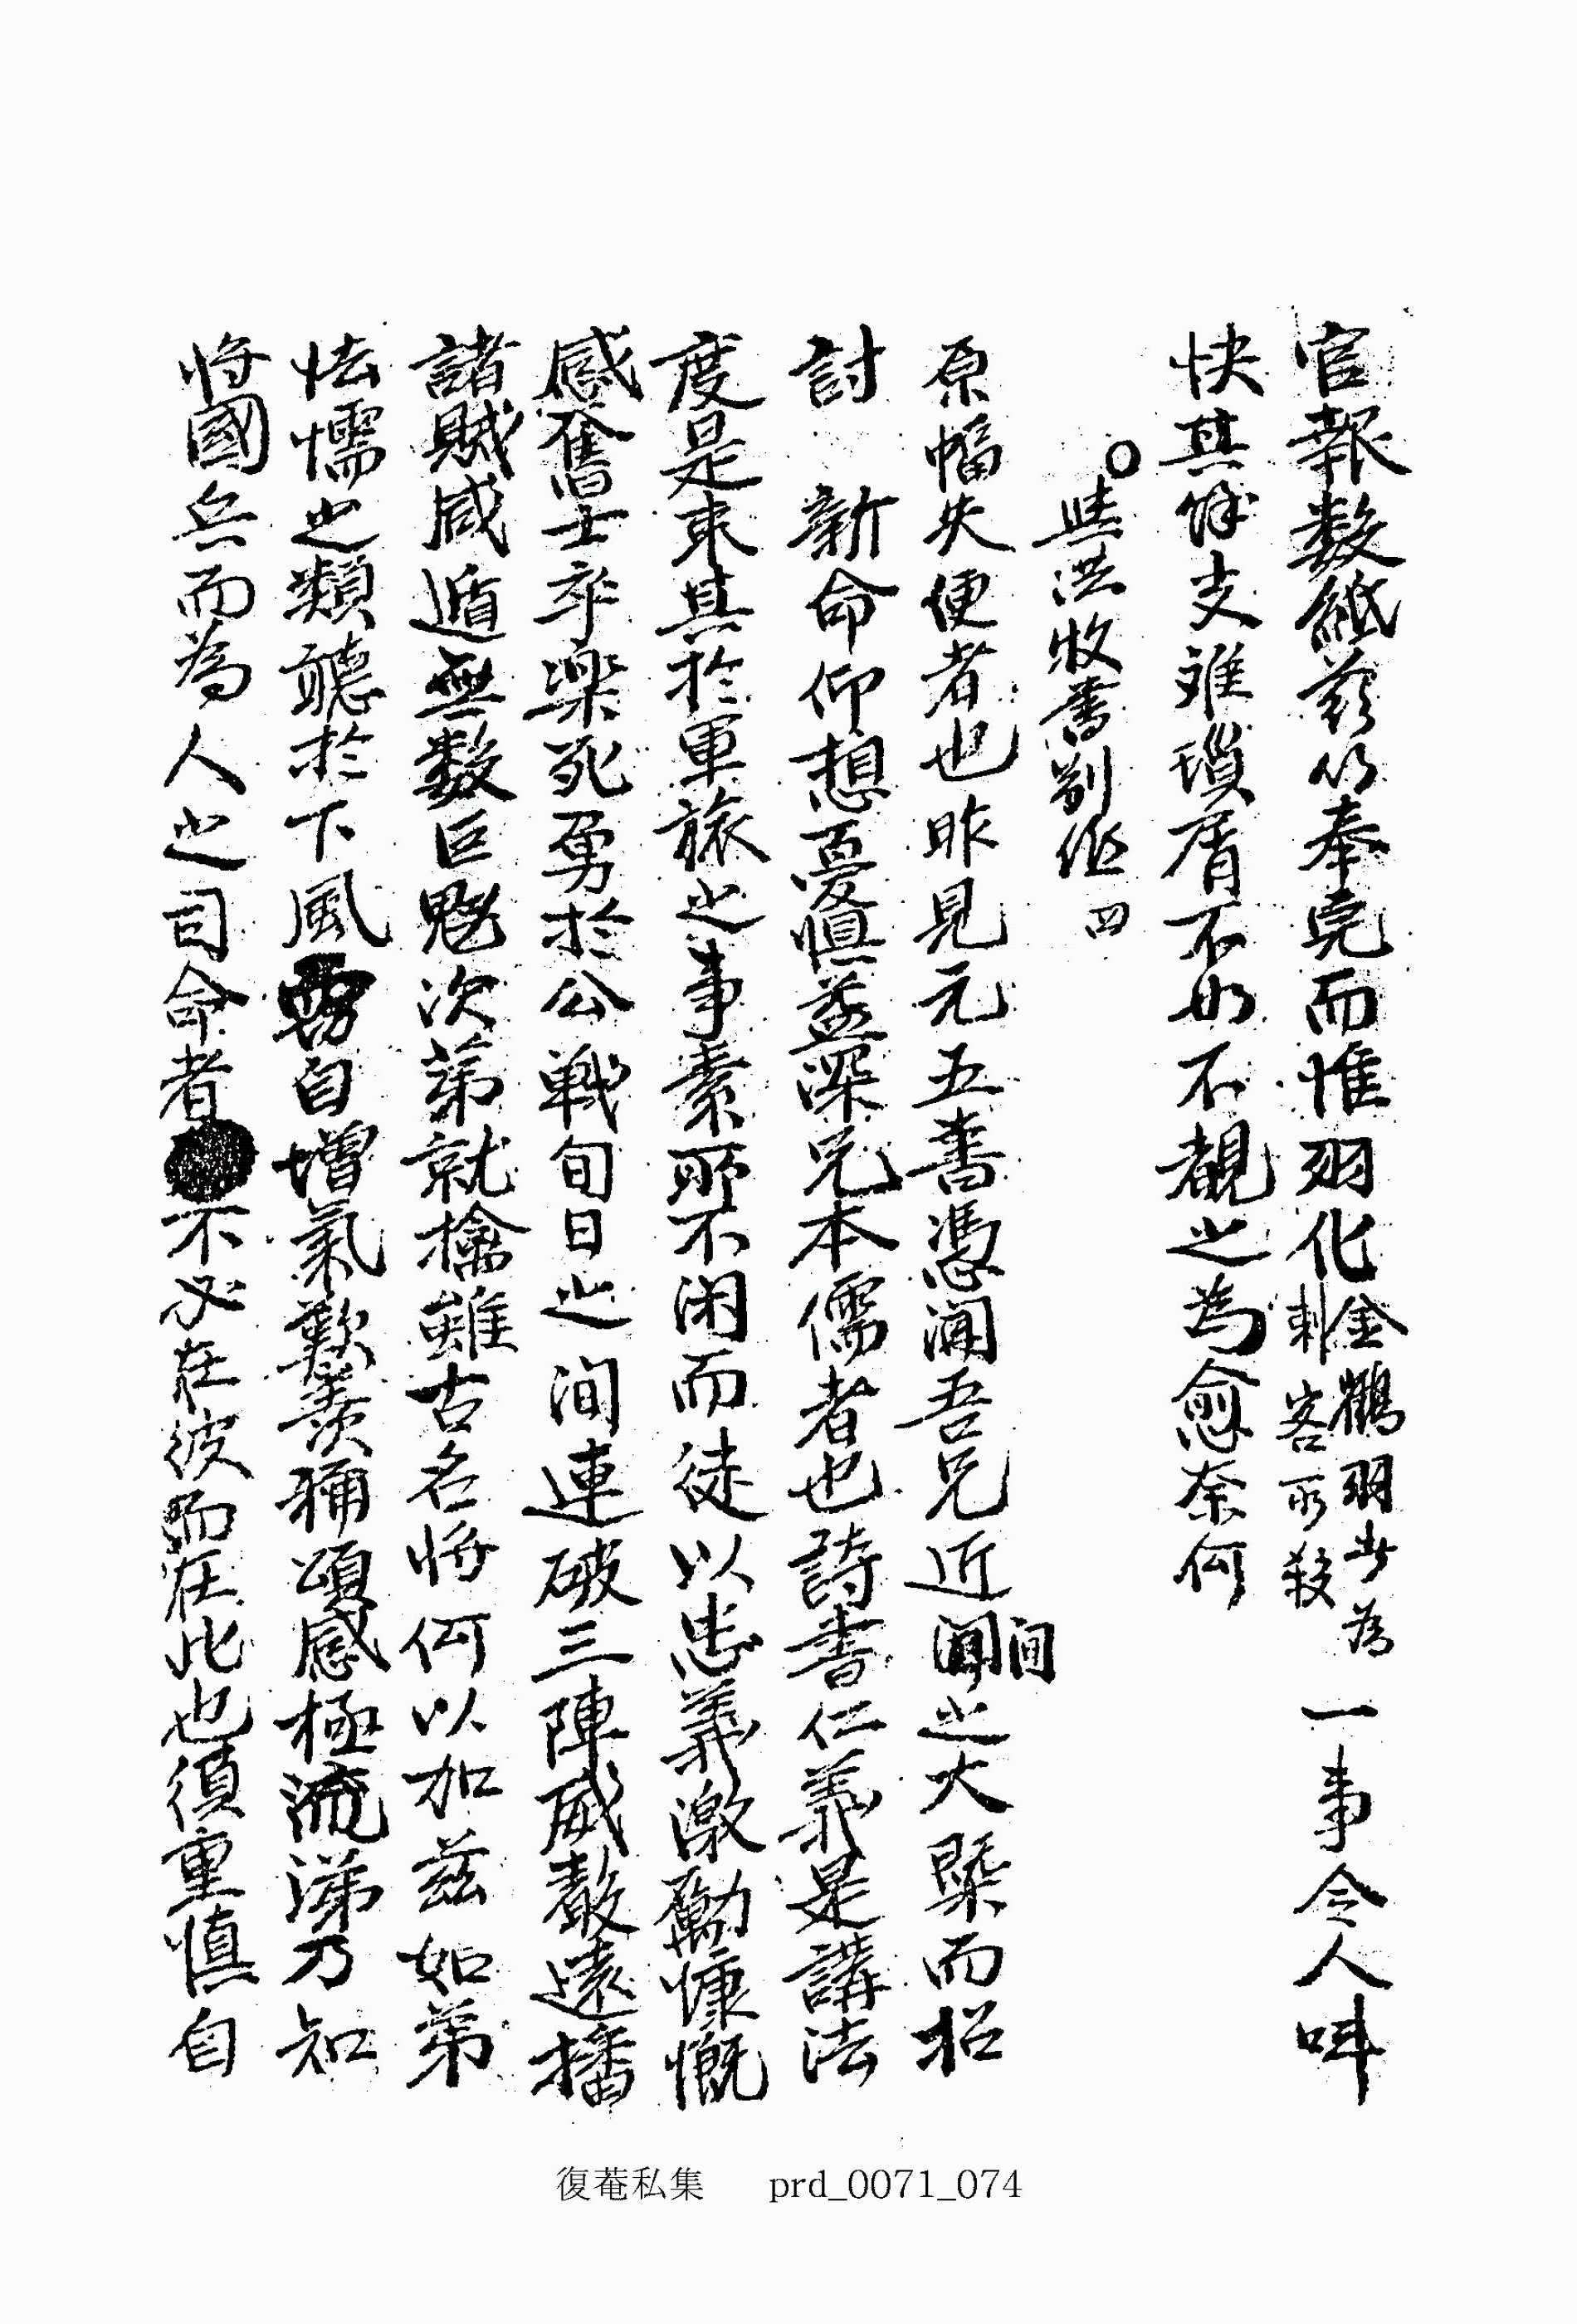 官報数紙玆以奉完而惟羽化金鶴羽少為刺客所殺一事令人呌
快其餘支難瑣屑不如不覩之為愈奈何
○與洪收書別紙 四
原幅失便者也昨見元五書憑聞吾兄近間之大槩而招
討 新命仰想憂慎益深兄本儒者也詩書仁義是講法
度是束其於軍旅之事素所不閑而徒以忠義激勵慷慨
感奮士卒樂死勇於公戰旬日之間連破三陣威聲遠播
諸賊咸遁無數巨魁次第就擒雖古名將何以加玆如弟
怯懦之類聽於下風 自增氣歎羨稱頌感極流涕乃知
將國兵而為人之司命者不必在彼而在此也須重慎自
復菴私集 prd_0071_074